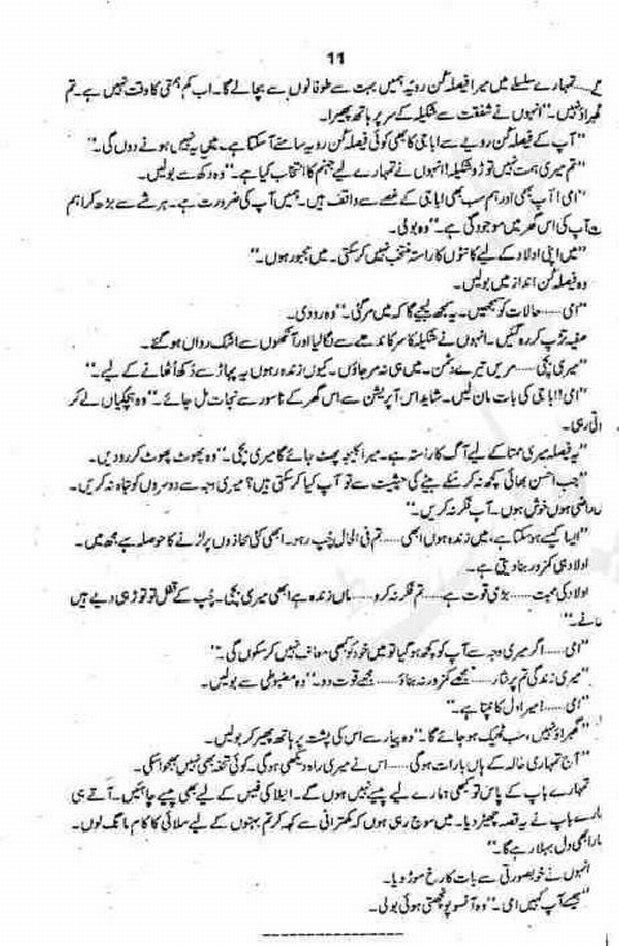 11
ہے....تمہارے سلسلے میں میرا فیصلہ کُن رویّہ ہمیں بہت سے طوفانوں سے بچالے گا۔ اب کم ہمتی کا وقت نہیں ہے۔ تم
گھبراؤ نہیں۔“ انہوں نے شفقت سے شکیلہ کے سر پر ہاتھ پھیرا۔
”آپ کے فیصلہ کُن رویے سے اباجی کا بھی کوئی فیصلہ کُن رویہ سامنے آسکتا ہے۔ میں یہ نہیں ہونے دوں گی۔“
”تم میری ہمت نہیں توڑو شکیلہ! انہوں نے تمہارے لیے جہنم کا انتخاب کیا ہے۔“ وہ دکھ سے بولیں۔
”امی! آپ بھی اور ہم سب بھی اباجی کے غصے سے واقف ہیں۔ ہمیں آپ کی ضرورت ہے۔ ہر شے سے بڑھ کر اہم
آپ کی اس گھر میں موجودگی ہے۔“ وہ بولی۔
”میں اپنی اولاد کے لیے کانٹوں کا راستہ منتخب نہیں کرسکتی۔ میں مجبور ہوں۔“
وہ فیصلہ کُن انداز میں بولیں۔
”امی....حالات کو سمجھیں۔ یہ سمجھ لیجیے گا کہ میں مرگئی۔“ وہ رو دی۔
صفیہ تڑپ کر رہ گئیں۔ انہوں نے شکیلہ کا سر کاندھے سے لگالیا اور آنکھوں سے اشک رواں ہوگئے۔
”میری بچی.....مریں تیرے دشمن۔ میں ہی نہ مرجاؤں۔ کیوں زندہ رہوں یہ پہاڑ سے دُکھ اُٹھانے کے لیے۔“
”امی! اباجی کی بات مان لیں۔ شاید اس آپریشن سے اس گھر کے ناسور سے نجات مل جائے۔“ وہ ہچکیاں لے کر
اتی رہی۔
”یہ فیصلہ میری ممتا کے لیے آگ کا راستہ ہے۔ میرا کلیجہ پھٹ جائے گا میری بچی۔“ وہ پھوٹ پھوٹ کر رو دیں۔
”جب احسن بھائی کچھ نہ کرسکے بیٹے کی حیثیت سے تو آپ کیا کرسکتی ہیں؟ میری وجہ سے دوسروں کو تباہ نہ کریں۔
راضی ہوں خوش ہوں۔ آپ فکر نہ کریں۔“
”ایسا کیسے ہوسکتا ہے، میں زندہ ہوں ابھی....تم فی الحال چُپ رہو۔ ابھی کئی محاذوں پر لڑنے کا حوصلہ ہے مجھ میں۔
اولاد ہی کمزور بنادیتی ہے۔
اولاد کی محبت.....بڑی قوت ہے....تم فکر نہ کرو.....ماں زندہ ہے ابھی میری بچی۔ چُپ کے قفل تو توڑ ہی دیے ہیں
مانے۔“
”امی....اگر میری وجہ سے آپ کو کچھ ہوگیا تو میں خود کو کبھی معاف نہیں کرسکوں گی۔“
”میری زندگی تم پر نثار.....مجھے کمزور نہ بناؤ.....مجھے قوت دو۔“ وہ مضبوطی سے بولیں۔
”امی.....! میرا دل کانپتا ہے۔“
”گھبراؤ نہیں، سب ٹھیک ہوجائے گا۔“ وہ پیار سے اس کی پشت پر ہاتھ پھیر کر بولیں۔
”آج تمہاری خالہ کے ہاں بارات ہوگی.....اس نے میری راہ دیکھی ہوگی۔ کوئی تحفہ بھی نہیں بھجواسکی۔
تمہارے باپ کے پاس تو کبھی ہمارے لیے پیسے نہیں ہوں گے۔ انیلا کی فیس کے لیے بھی پیسے چاہئیں۔ آتے ہی
ہارے باپ نے یہ قصہ چھیڑ دیا۔ میں سوچ رہی ہوں کہ مہترانی سے کہہ کر تم بہنوں کے لیے سلائی کا کام مانگ لوں۔
ہارا بھی دل بہلا رہے گا۔“
انہوں نے خوبصورتی سے بات کا رخ موڑ دیا۔
”جیسے آپ کہیں امی۔“ وہ آنسو پونچھتی ہوئی بولی۔